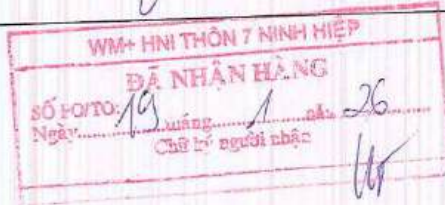 WM+ HNI THÔN 7 NINH HIỆP
ĐÃ NHẬN HÀNG
SỐ PO/TO:
Ngày 19 tháng 1 năm 26
Chữ ký người nhận